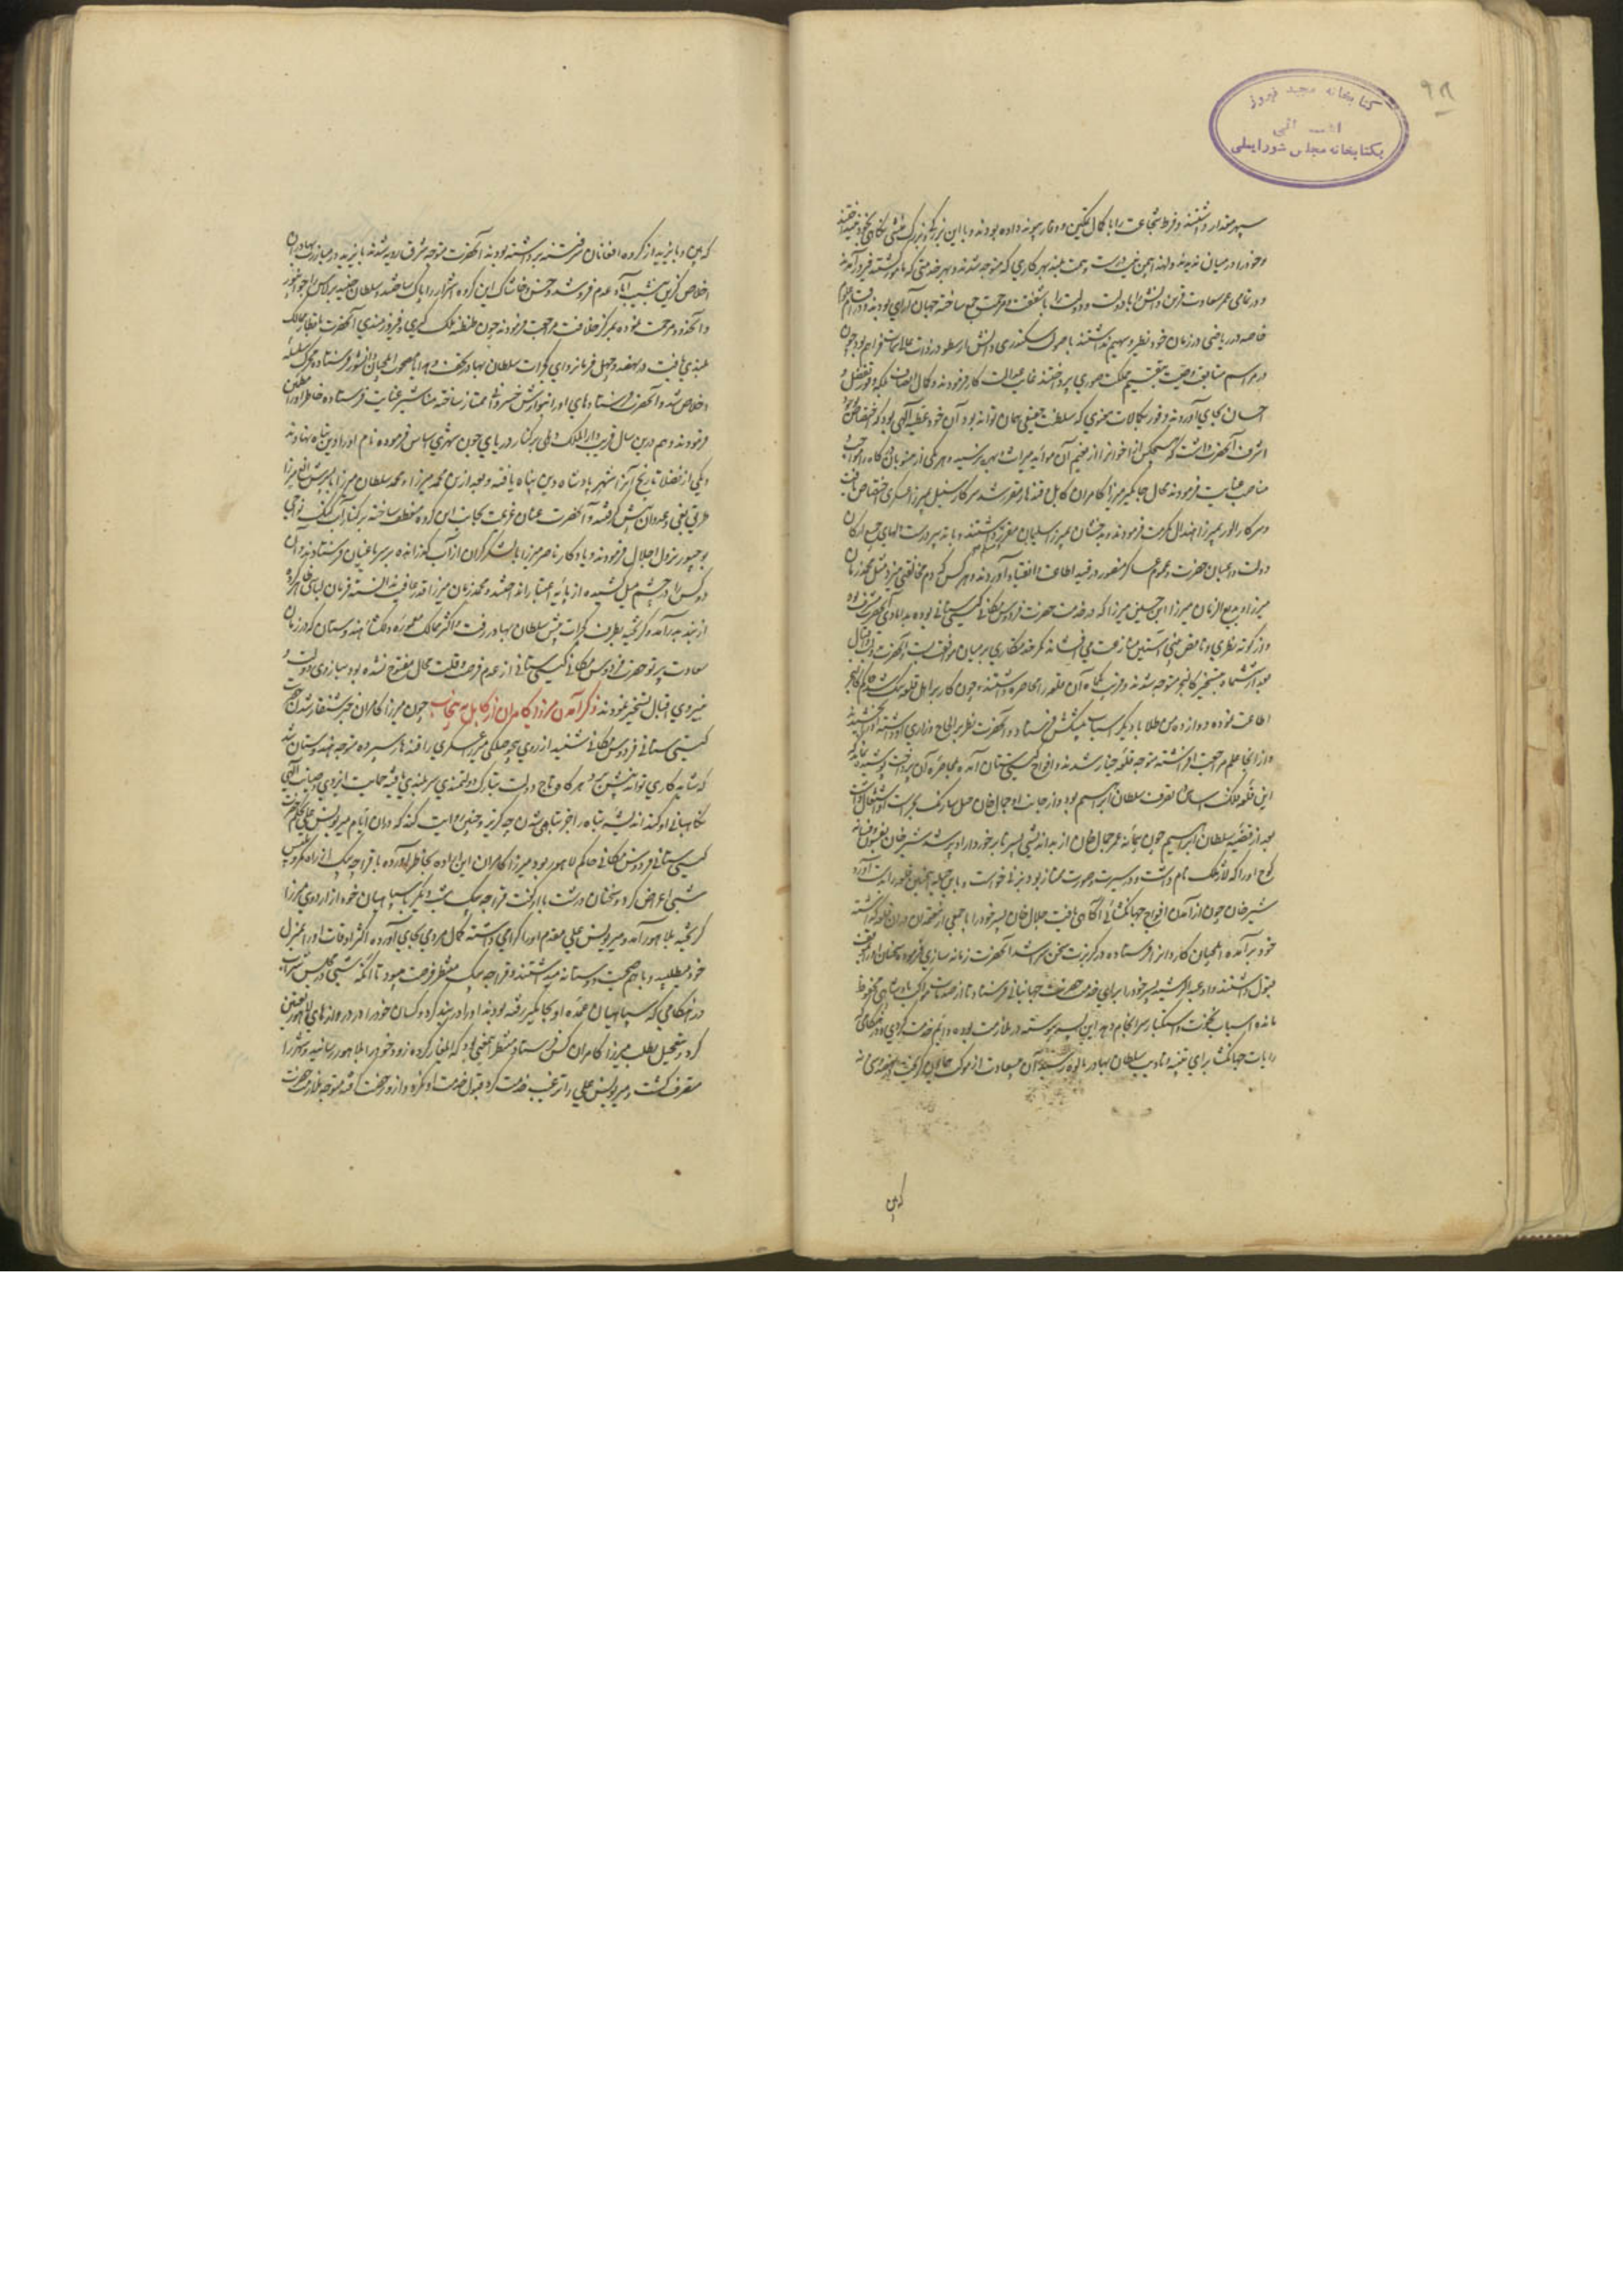 ۹۸
کتابخانه مجید فیروز
بکتابخانه مجلس شورایملی
سپهر مقدار داشتند و فرط شجاعت را با کمال تمکین و وقار پیوند داده بودند و با این بزرگی
و خود را در میان ندیدند و همت بلند بهر کاری که متوجه شدند و بهر خدمتی که مامور گشتند
و در تمامی عمر سعادت قرین دانش را با دولت و دولت را با شفقت و مرحمت جمع ساخته جهان آرای بودند
خاصه در ریاضی در زمان خود نظیر و سهیم نداشتند با صولت سکندری دانش ارسطو در ذات
در مراسم وصیت بتقسیم مملکت صوری پرداختند غایت عدالت کار فرمودند و کمال انصاف بلکه وفور تفضل و
احسان بجای آوردند و فور کمالات معنوی که سلطنت حقیقی همان تواند بود آن خود عطیه الهی بود که
اشرف آنحضرت داشت که هیچکس از اخوان را از مغنم آن موائد میراث و بهره نرسید و هر یکی از منسوبان
مناصب عنایت فرمودند محال جاگیر میرزا کامران کابل قندهار مقرر شد سرکار سنبل بمیرزا عسکری اختصاص یافت
و سرکار الور بمیرزا هندال کرمت فرمودند و بدخشان بمیرزا سلیمان مقرر داشتند و بتدبیر درست
دولت و اعیان حضرت و عموم عساکر منصور در قید اطاعت و انقیاد آوردند و هر کس که دم مخالفتی میزد مثل محمد زمان
میرزا بدیع الزمان میرزا ابن حسین میرزا که در خدمت حضرت فردوس مکانی گیتی ستانی بوده
و از کوته نظری و ناقص بینی آستین منازعت می افشاند کمر خدمتکاری بر میان موافقت بست و آنحضرت
بعد از شش ماه بتسخیر کالنجر متوجه شدند و قریب یکماه آن قلعه را محاصره داشتند چون کار بر اهل قلعه تنگ شد حاکم کالنجر
اطاعت نموده دوازده من طلا با دیگر اسباب پیشکش فرستاد و آنحضرت نظر بر الحاح و زاری او داشته
و از آنجا علم مراجعت افراشته متوجه قلعه چنار شدند و افواج گیتی ستان آمده بمحاصره آن پرداخت
این قلعه فلک اساس بتصرف سلطان ابراهیم بود و از جانب او جمال خان
بعد از قضیه سلطان ابراهیم چون پیمانه عمر جمال خان از بداندیشی پسر نابرخوردار او پر شد شیر خان
کوچ او را که لاد ملک نام داشت و در سیرت و صورت ممتاز بود بزنی خواست و باین حیله
شیر خان چون از آمدن افواج جهانگشائی آگاهی یافت جلال خان پسر خود را با جمعی از معتمدان در آن قلعه گذاشته
خود برآمده ایلچیان کاردان را فرستاده در گربزت سخن سرا شد آنحضرت زمانه سازی فرموده سخنان او را
قبول داشتند و او عبد الرشید پسر خود را برای خدمت حضرت جهانبانی فرستاد تا از صدمات موکب پادشاهی محفوظ
مانده اسباب نخوت و استکبار سرانجام دهد این پسر پیوسته در ملازمت بوده دایم خدمت کردی
رایات جهانگشا برای تنبیه و تادیب سلطان بهادر بمالوه رسید آن بی سعادت از موکب همایون گریخت
که بین و بایزید از گروه افغانان فتنه برداشته بودند آنحضرت متوجه شرق رویه شدند بایزید در مبارزت بهادران
اخلاص گزین بنشیب آباد عدم فرو شد و خس و خاشاک این گروه اشرار را پاک ساختند و سلطان جنید برلاس را جونپور
و آنحدود مرحمت نموده بمرکز خلافت مراجعت فرمودند چون طنطنه ملک گیری و فیروزمندی آنحضرت باقطار ممالک
بلندی یافت در نهصد و چهل فرمانروای گجرات سلطان بهادر تحف و هدایا مصحوب ایلچیان دانشور فرستاده محرک سلسله
اخلاص شد و آنحضرت فرستادهای او را بنوازش خسروانه ممتاز ساخته مناشیر عنایت فرستاده خاطر او را مطمئن
فرمودند و هم درین سال قریب دار الملک دهلی بر کنار دریای جون شهری اساس فرموده نام او را دین پناه نهادند
و یکی از فضلا تاریخ آنرا شهر پادشاه دین پناه یافته و بعد ازین محمد میرزا و محمد سلطان میرزا با پسرش الغ میرزا
طریق بغی و عدوان پیش گرفتند و آنحضرت عنان عزیمت بجانب این گروه منعطف ساخته بر کنار آب گنگ نواحی
بوجپور نزول اجلال فرمودند و یادگار ناصر میرزا با لشکر گران از آب گذرانده بر سر باغیان فرستادند و آن
دو کس را در چشم میل کشیده از پایه اعتبار انداختند و محمد زمان میرزا قدر عافیت ندانسته فرمان لباسی ظاهر کرده
از بند برآمده گریخته بطرف گجرات پیش سلطان بهادر رفت و اکثر ممالک معموره و دلگشا هندوستان که در زمان
سعادت پرتو حضرت فردوس مکانی گیتی ستانی از عدم فرصت و قلت مجال مفتوح نشده بود ببازوی دولت و
نیروی اقبال تسخیر نمودند ذکر آمدن میرزا کامران از کابل به پنجاب چون میرزا کامران خبر شنقار شدن حضرت
گیتی ستانی فردوس مکانی شنید از روی بیحوصلگی میرزا عسکری را قندهار سپرده متوجه هندوستان شد
که شاید کاری تواند پیش برد هر گاه تاج دولت بتارک دولتمندی سربلندی یافته حمایت ایزدی و صیانت الهی
نگاهبانی او کند اندیشه تباه را جز تباهی شدن چه گزیر و چنین روایت کنند که در آن ایام میر یونس علی بحکم حضرت
گیتی ستانی فردوس مکانی حاکم لاهور بود میرزا کامران این اراده بخاطر آورده با قراجه بیک
شبی اعراض کرد و سخنان درشت با او گفت قراجه بیک شب دیگر با سپاهیان خود از اردوی میرزا
گریخته بلاهور آمد و میر یونس علی مقدم او را گرامی داشته کمال مردمی بجای آورده اکثر اوقات او را بمنزل
خود می طلبید و با هم صحبت دوستانه میداشتند و قراجه بیک منتظر فرصت میبود تا آنکه شبی در مجلس شراب
در هنگامی که سپاهیان عمده او بجاگیر رفته بودند او را در بند کرد و کسان خود را در دروازهای لاهور تعیین
کرد و بتعجیل بطلب میرزا کامران کس فرستاد و منتظر این معنی بود که ایلغار کرده زود خود را بلاهور رسانید و شهر را
متصرف گشت و میر یونس علی را ترغیب خدمت کرد قبول خدمت او نکرد و از او رخصت گرفته متوجه ملازمت حضرت
که بین